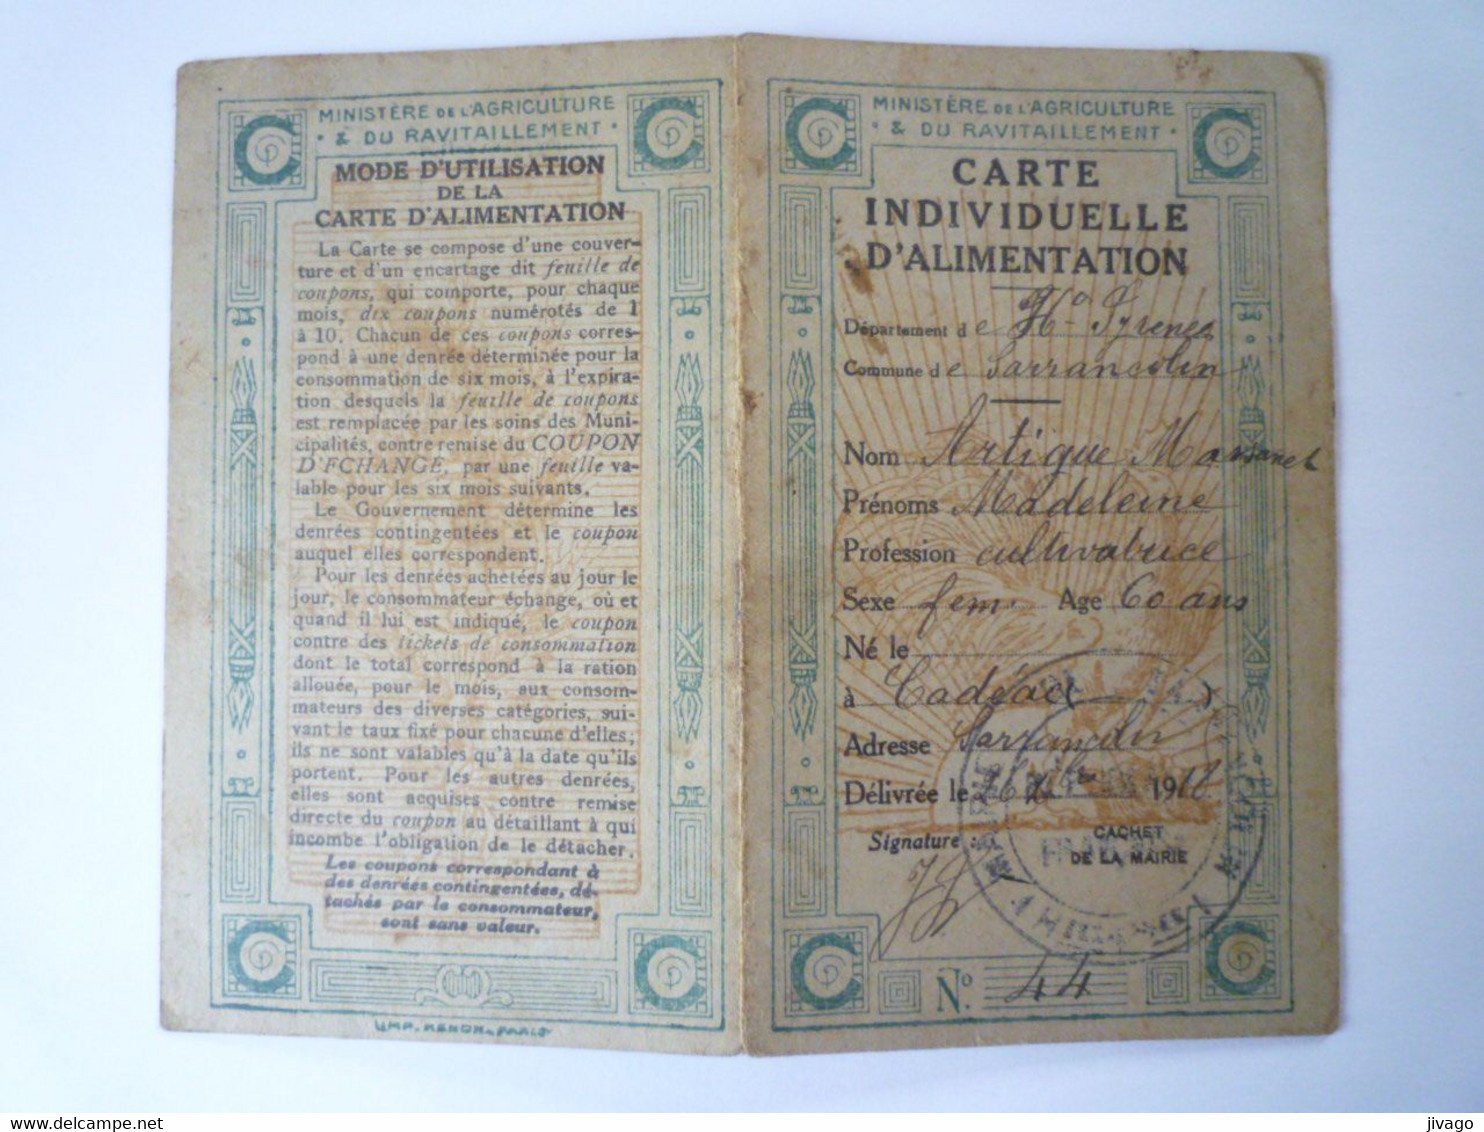 MINISTÈRE DE L'AGRICULTURE
& DU RAVITAILLEMENT
MODE D'UTILISATION
DE LA
CARTE D'ALIMENTATION
La Carte se compose d'une couver-
ture et d'un encartage dit feuille de
coupons, qui comporte, pour chaque
mois, dix coupons numérotés de 1
à 10. Chacun de ces coupons corres-
pond à une denrée déterminée pour la
consommation de six mois, à l'expira-
tion desquels la feuille de coupons
est remplacée par les soins des Muni-
cipalités, contre remise du COUPON
D'FCHANGE, par une feuille va-
lable pour les six mois suivants.
Le Gouvernement détermine les
denrées contingentées et le coupon
auquel elles correspondent.
Pour les denrées achetées au jour le
jour, le consommateur échange, où et
quand il lui est indiqué, le coupon
contre des tickets de consommation
dont le total correspond à la ration
allouée, pour le mois, aux consom-
mateurs des diverses catégories, sui-
vant le taux fixé pour chacune d'elles;
ils ne sont valables qu'à la date qu'ils
portent. Pour les autres denrées,
elles sont acquises contre remise
directe du coupon au détaillant à qui
incombe l'obligation de le détacher.
Les coupons correspondant à
des denrées contingentées, dé-
tachés par le consommateur,
sont sans valeur.
IMP. RENON. PARIS
MINISTÈRE DE L'AGRICULTURE
& DU RAVITAILLEMENT
CARTE
INDIVIDUELLE
D'ALIMENTATION
Département de Htes Pyrenees
Commune de Sarrancolin
Nom Artigue
Prénoms Madeleine
Profession cultivatrice
Sexe fem. Age 60 ans
Né le
à Cadéac
Adresse Sarrancolin
Délivrée le 191
Signature :
CACHET
DE LA MAIRIE
N° 44
delcampe.net
jivago